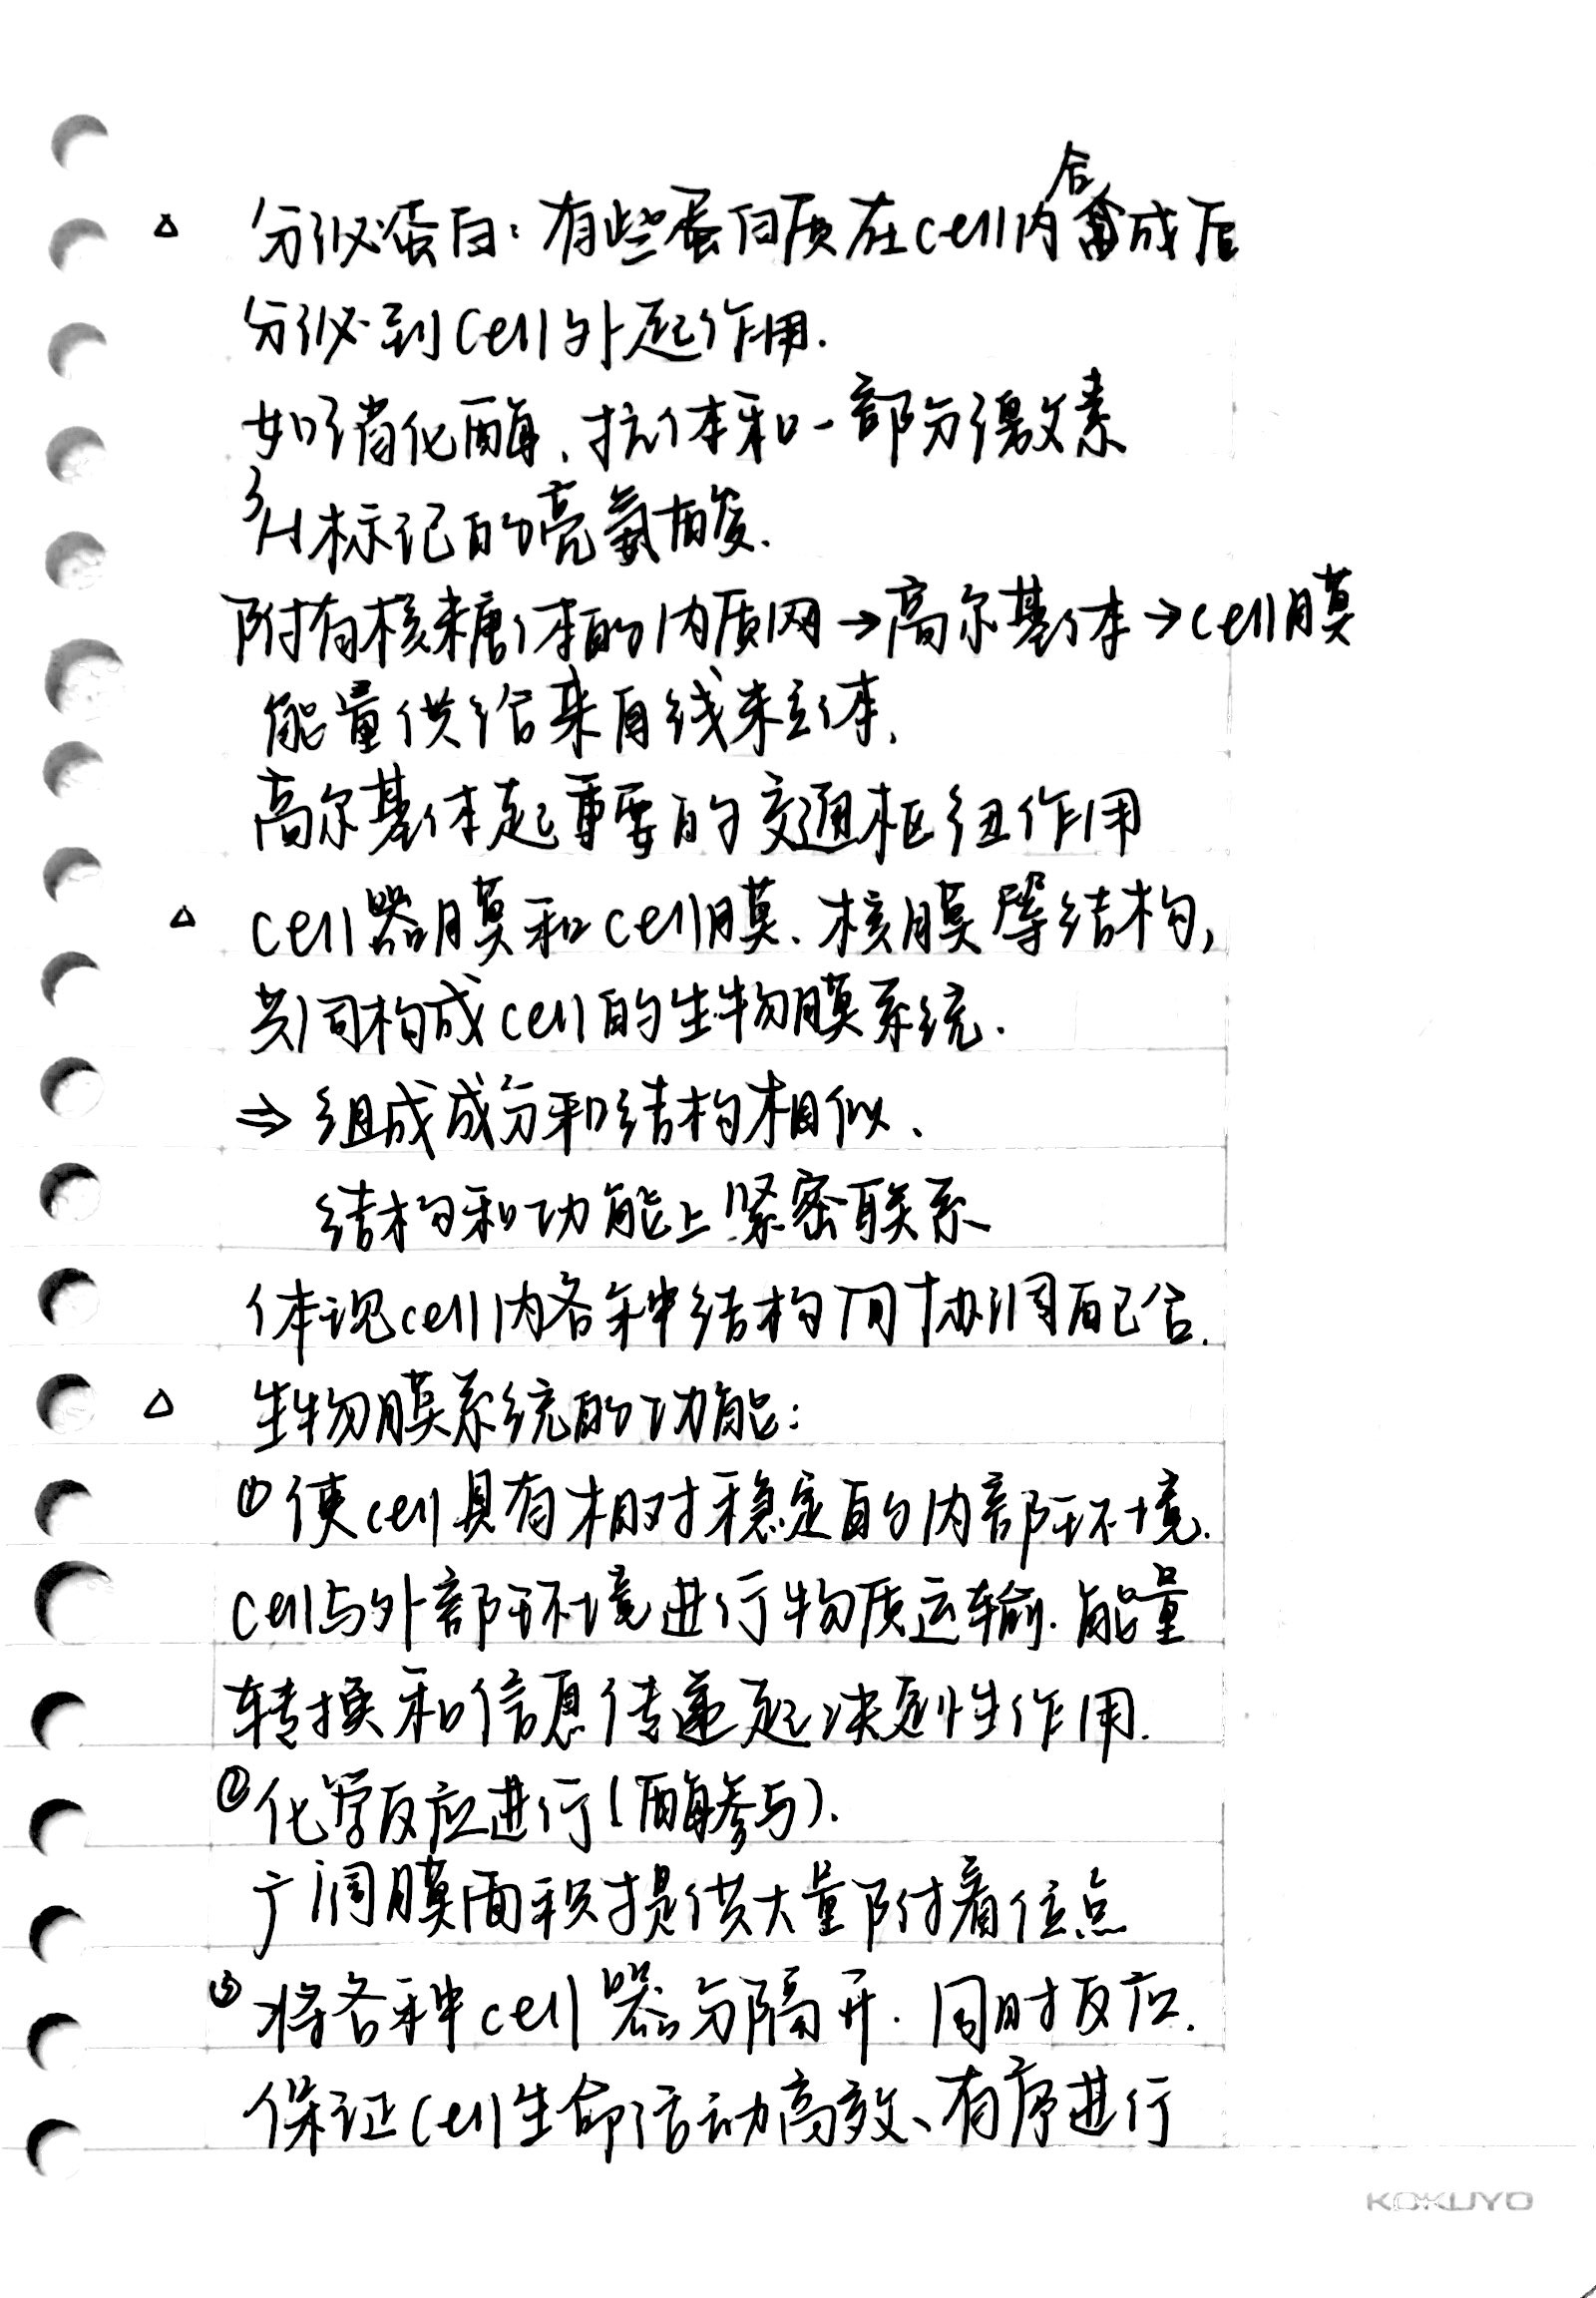 △ 分泌蛋白：有些蛋白质在cell内合成后
分泌到cell外起作用.
如消化酶、抗体和一部分激素
³H标记的亮氨酸.
附有核糖体的内质网→高尔基体→cell膜
能量供给来自线粒体.
高尔基体起重要的交通枢纽作用
△ cell器膜和cell膜、核膜等结构,
共同构成cell的生物膜系统.
⇒ 组成成分和结构相似、
结构和功能上紧密联系
体现cell内各种结构间协调配合.
△ 生物膜系统的功能：
① 使cell具有相对稳定的内部环境.
cell与外部环境进行物质运输.能量
转换和信息传递起决定性作用.
② 化学反应进行(酶参与).
广阔膜面积提供大量附着位点
③ 将各种cell器分隔开.同时反应.
保证cell生命活动高效、有序进行
KOKUYO